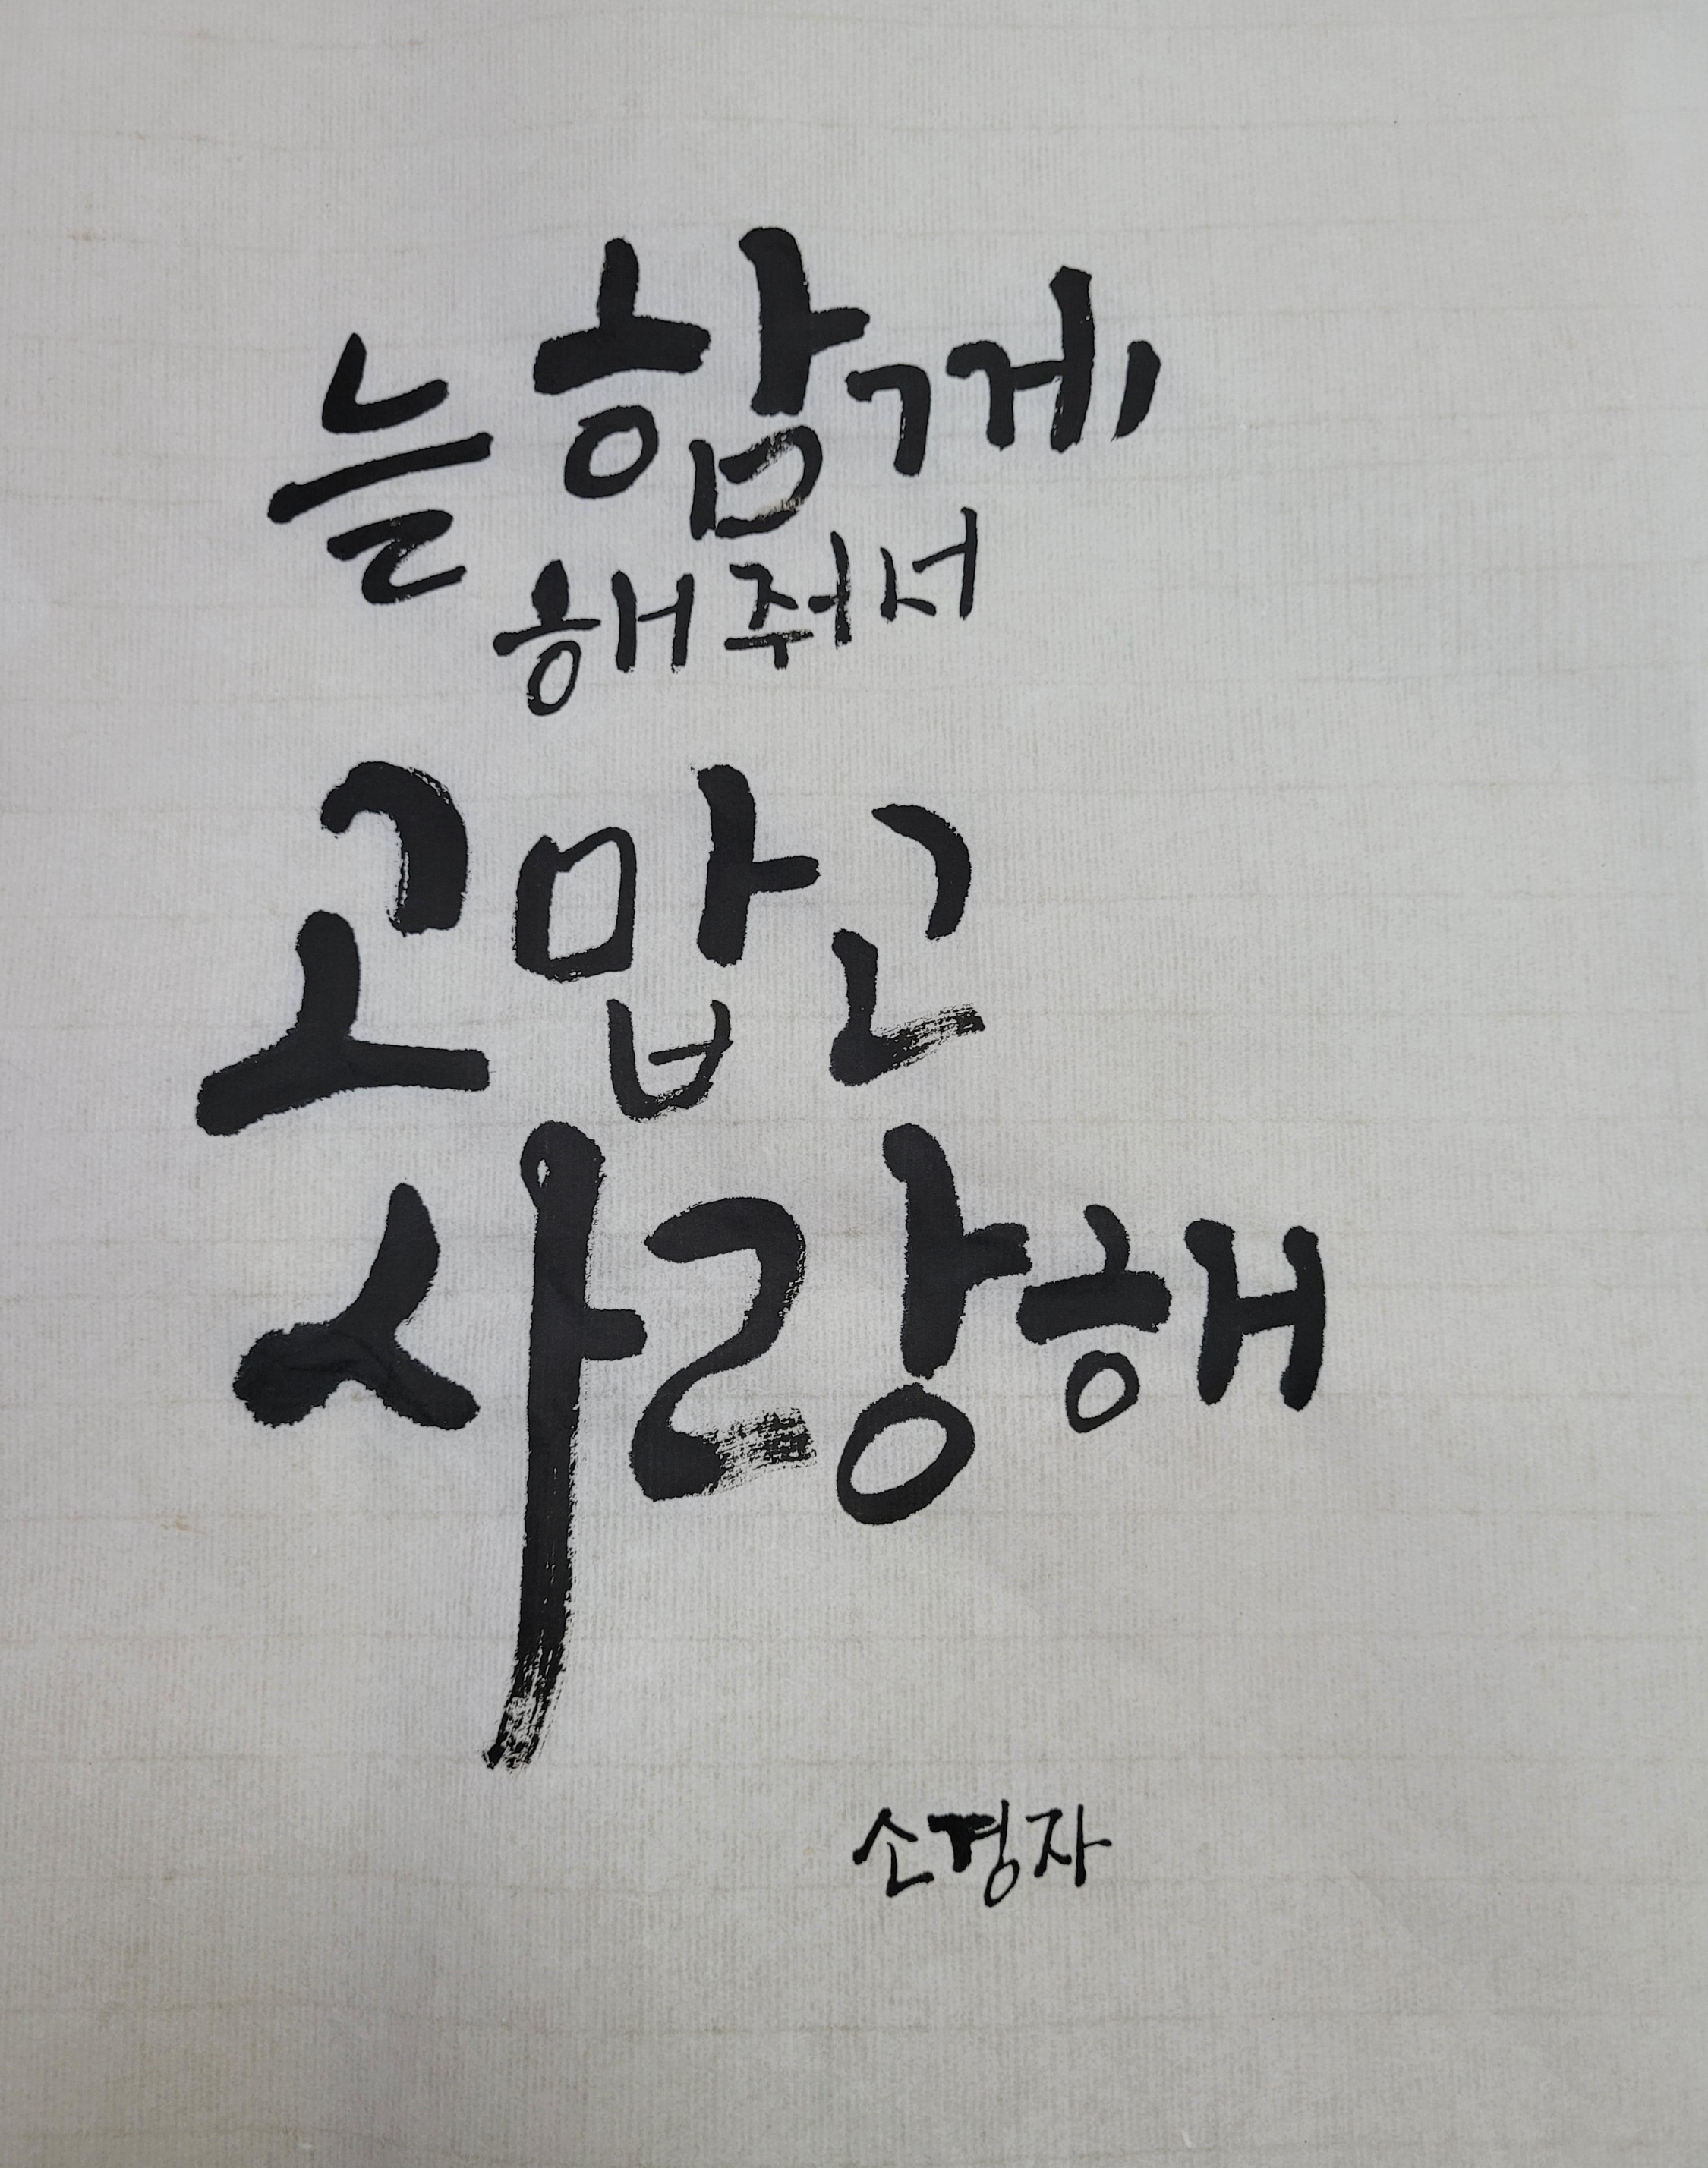 늘 함께
해줘서
고맙고
사랑해
소경자